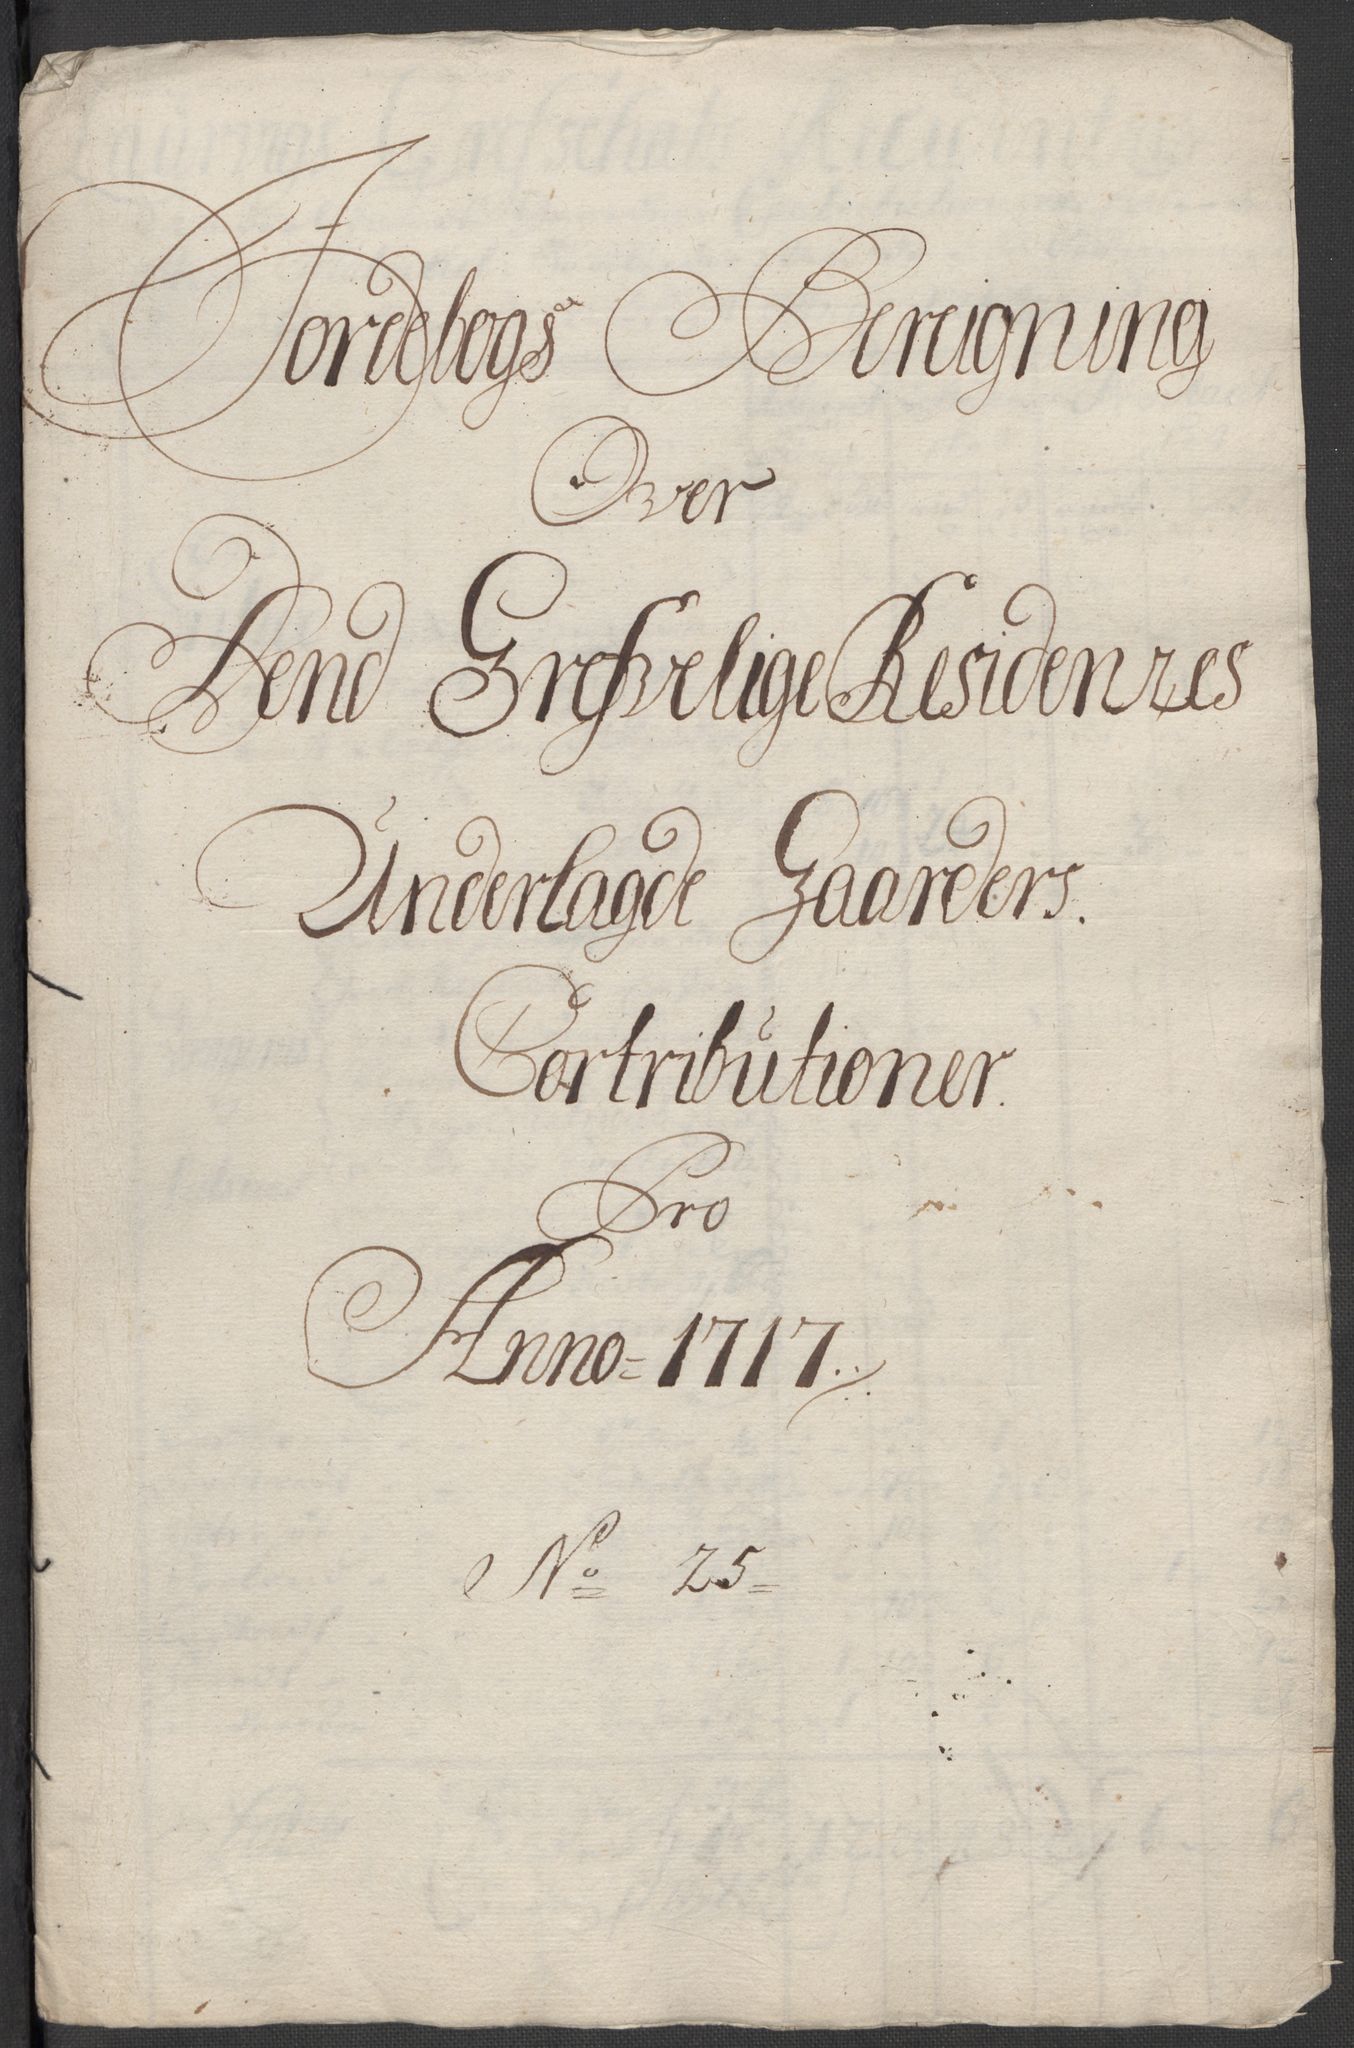 Jordebogs Bereigning
Over
Dend Grefvelige Residenzes
Underlagde Gaarders.
Contributioner.
Pro
Anno = 1717.
No 25 =